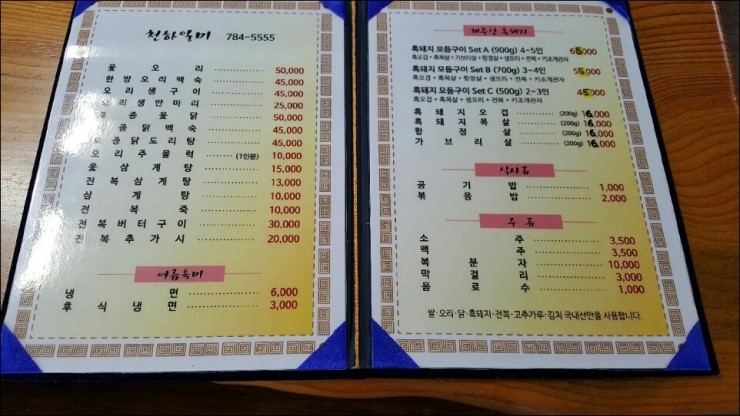 천하일미 784-5555
꽃오리 50,000
한방오리백숙 45,000
오리생구이 45,000
오리생반마리 25,000
토종꽃닭 50,000
토종닭백숙 45,000
토종닭도리탕 45,000
오리주물럭 (1인분) 10,000
꽃삼계탕 15,000
전복삼계탕 13,000
삼계탕 10,000
전복죽 10,000
전복버터구이 30,000
전복추가시 20,000
여름특미
냉면 6,000
후식냉면 3,000
제주산 흑돼지
흑돼지 모듬구이 Set A (900g) 4~5인 65,000
흑오겹 + 흑목살 + 가브리살 + 항정살 + 생오리 + 전복 + 키조개관자
흑돼지 모듬구이 Set B (700g) 3~4인 55,000
흑오겹 + 흑목살 + 항정살 + 생오리 + 전복 + 키조개관자
흑돼지 모듬구이 Set C (500g) 2~3인 45,000
흑오겹 + 흑목살 + 생오리 + 전복 + 키조개관자
흑돼지오겹 (200g) 16,000
흑돼지목살 (200g) 16,000
항정살 (200g) 16,000
가브리살 (200g) 16,000
식사류
공기밥 1,000
볶음밥 2,000
주류
소주 3,500
맥주 3,500
복분자 10,000
막걸리 3,000
음료수 1,000
쌀·오리·닭·흑돼지·전복·고추가루·김치 국내산만을 사용합니다.